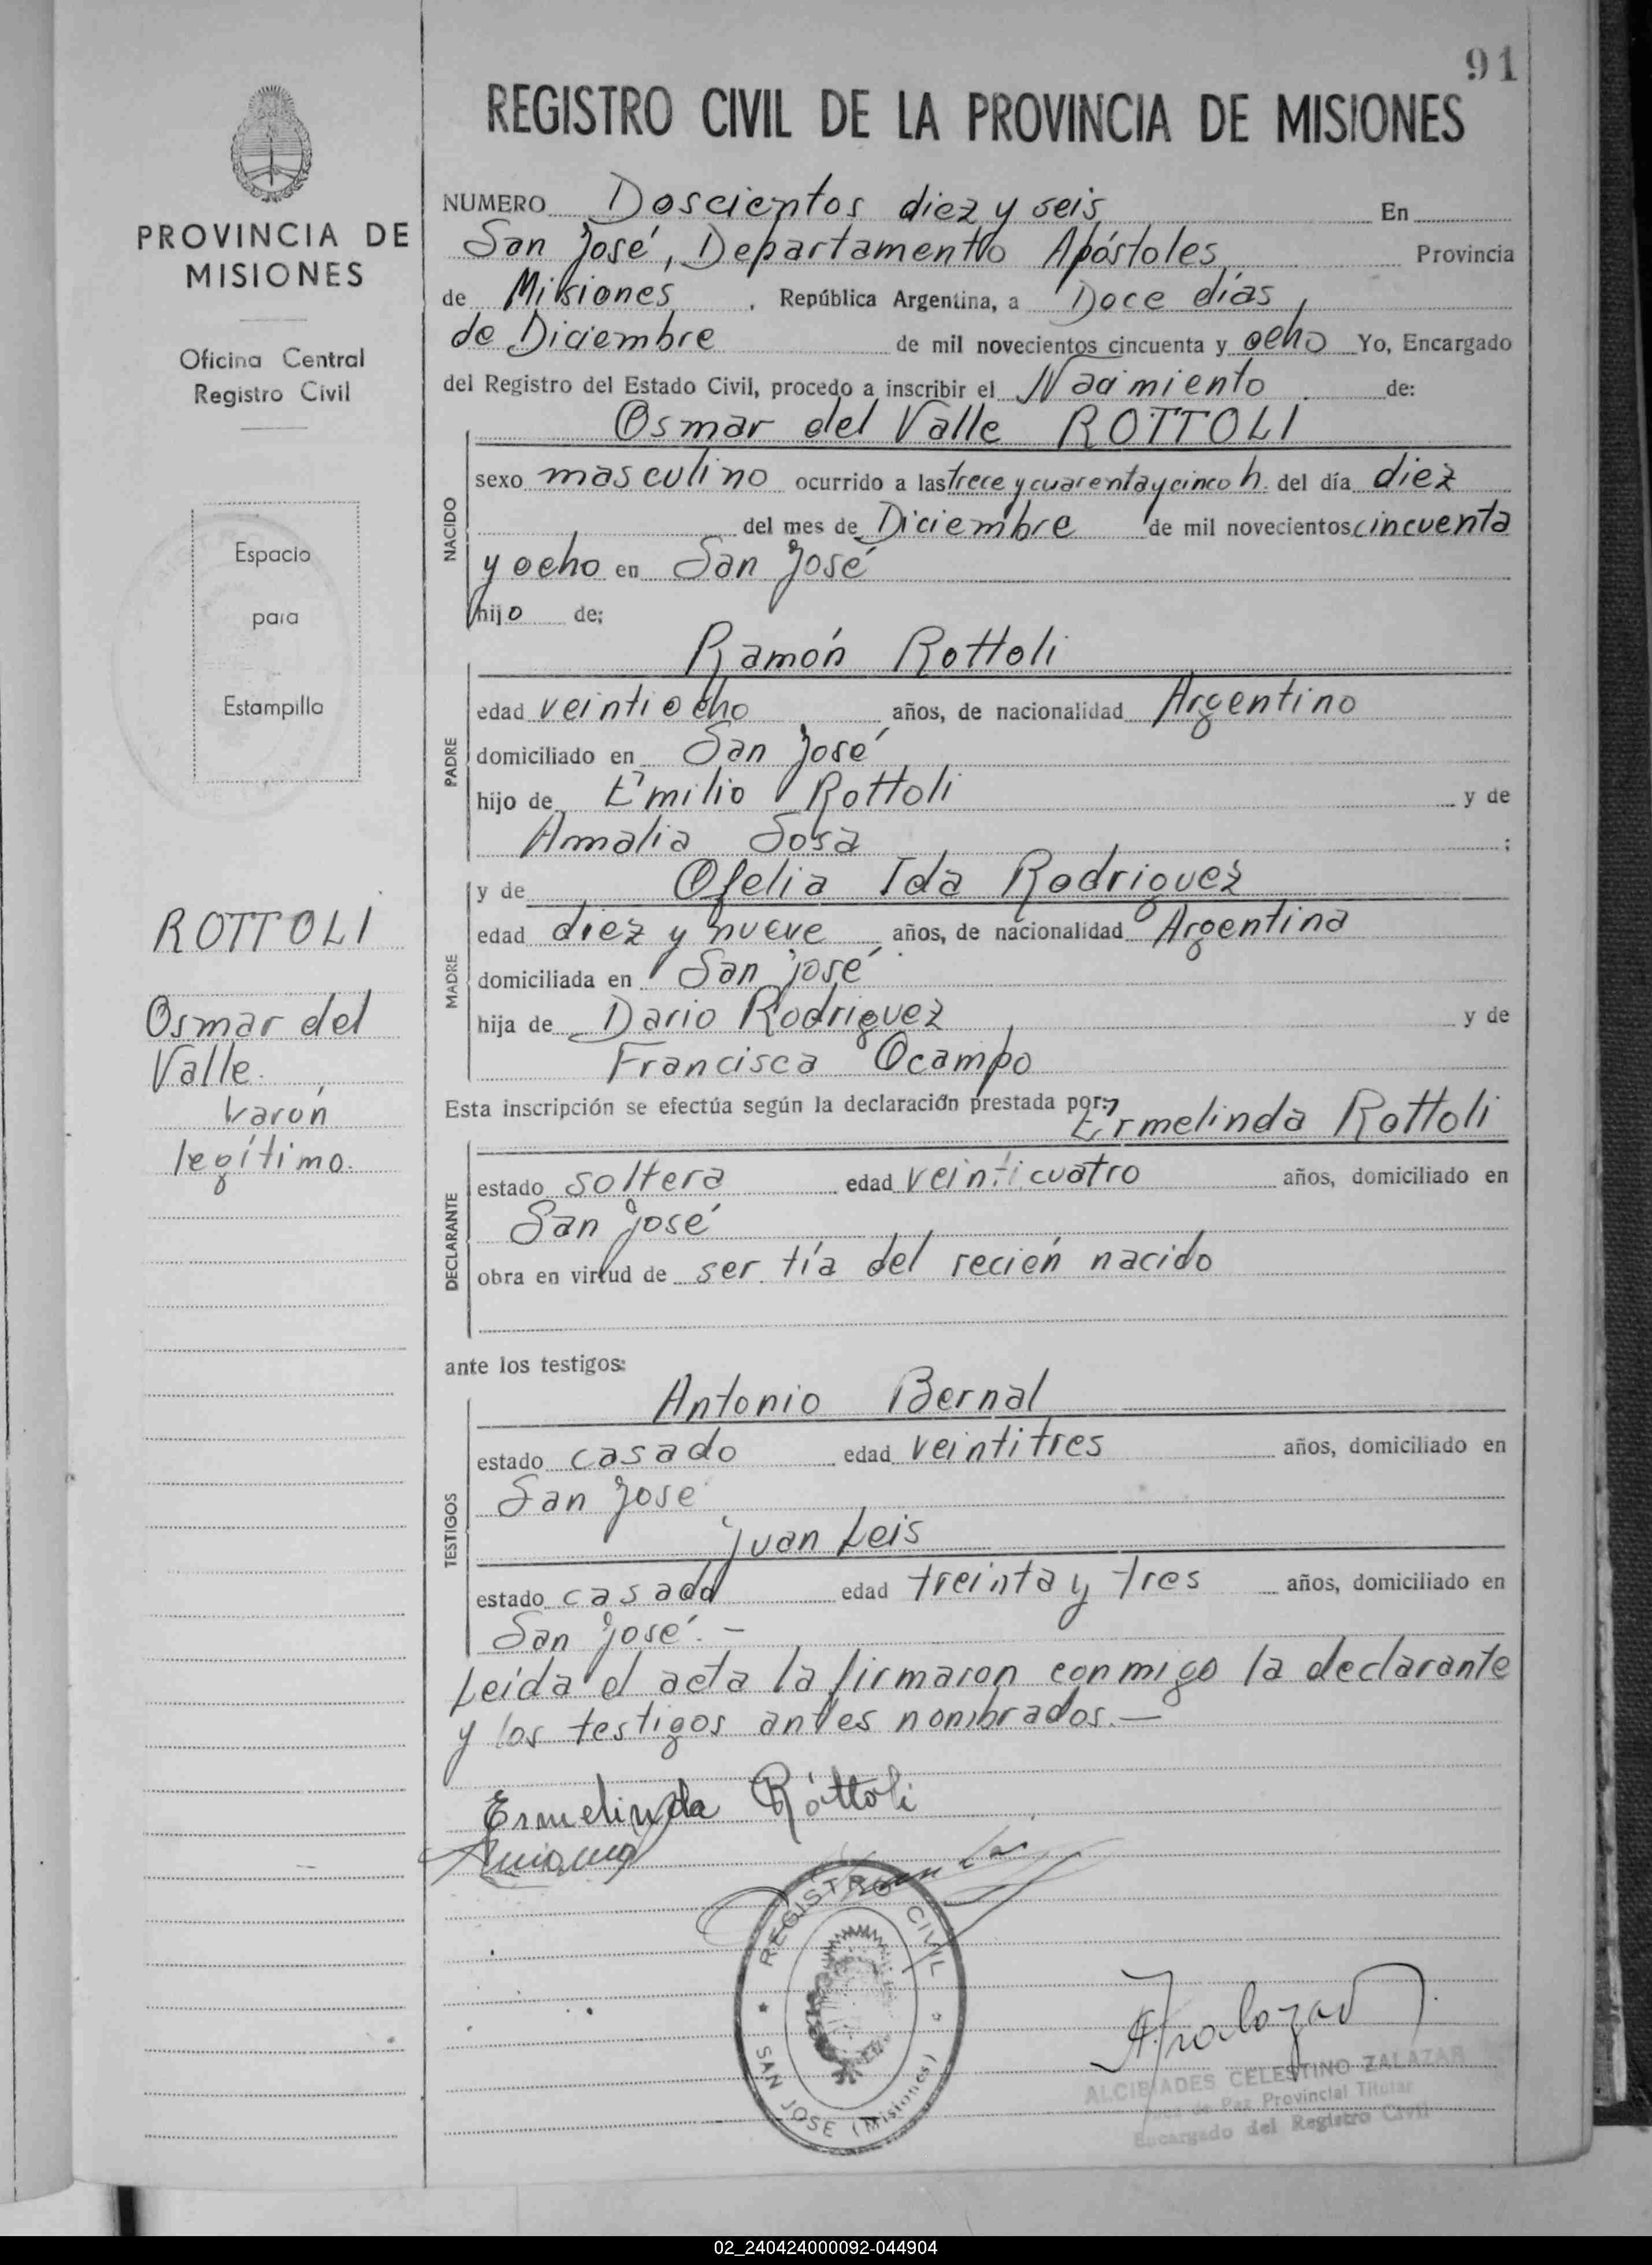 91
REGISTRO CIVIL DE LA PROVINCIA DE MISIONES
PROVINCIA DE
MISIONES
Oficina Central
Registro Civil
Espacio
para
Estampilla
ROTTOLI
Osmar del
Valle.
Varón
legítimo.
NUMERO Doscientos diez y seis En
San José, Departamento Apóstoles, Provincia
de Misiones, República Argentina, a Doce días,
de Diciembre de mil novecientos cincuenta y ocho Yo, Encargado
del Registro del Estado Civil, procedo a inscribir el Nacimiento de:
Osmar del Valle ROTTOLI
NACIDO
sexo masculino ocurrido a las trece y cuarenta y cinco h. del día diez
del mes de Diciembre de mil novecientos cincuenta
y ocho en San José
hijo de;
Ramón Rottoli
PADRE
edad veintiocho años, de nacionalidad Argentino
domiciliado en San José
hijo de Emilio Rottoli y de
Amalia Sosa ;
MADRE
y de Ofelia Ida Rodriguez
edad diez y nueve años, de nacionalidad Argentina
domiciliada en San José
hija de Dario Rodriguez y de
Francisca Ocampo
Esta inscripción se efectúa según la declaración prestada por:
Ermelinda Rottoli
DECLARANTE
estado soltera edad veinticuatro años, domiciliado en
San José
obra en virtud de ser tía del recién nacido
ante los testigos:
Antonio Bernal
TESTIGOS
estado casado edad veintitres años, domiciliado en
San José
Juan Leis
estado casado edad treinta y tres años, domiciliado en
San José.-
Leída el acta la firmaron conmigo la declarante
y los testigos antes nombrados.—
Ermelinda Róttoli
REGISTRO CIVIL
SAN JOSE (Misiones)
ALCIBIADES CELESTINO ZALAZAR
Juez de Paz Provincial Titular
Encargado del Registro Civil
02_240424000092-044904